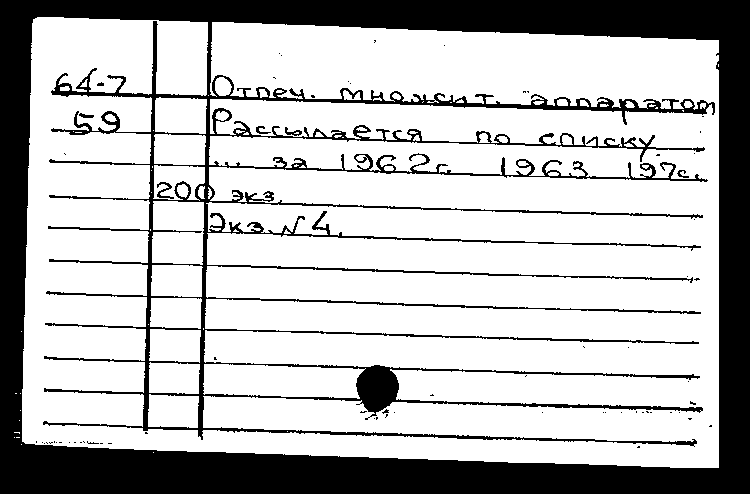 64-7 Отпеч. множит. аппаратом
59 Рассылается по списку
... за 1962г. 1963. 197с.
200 экз.
Экз. № 4.